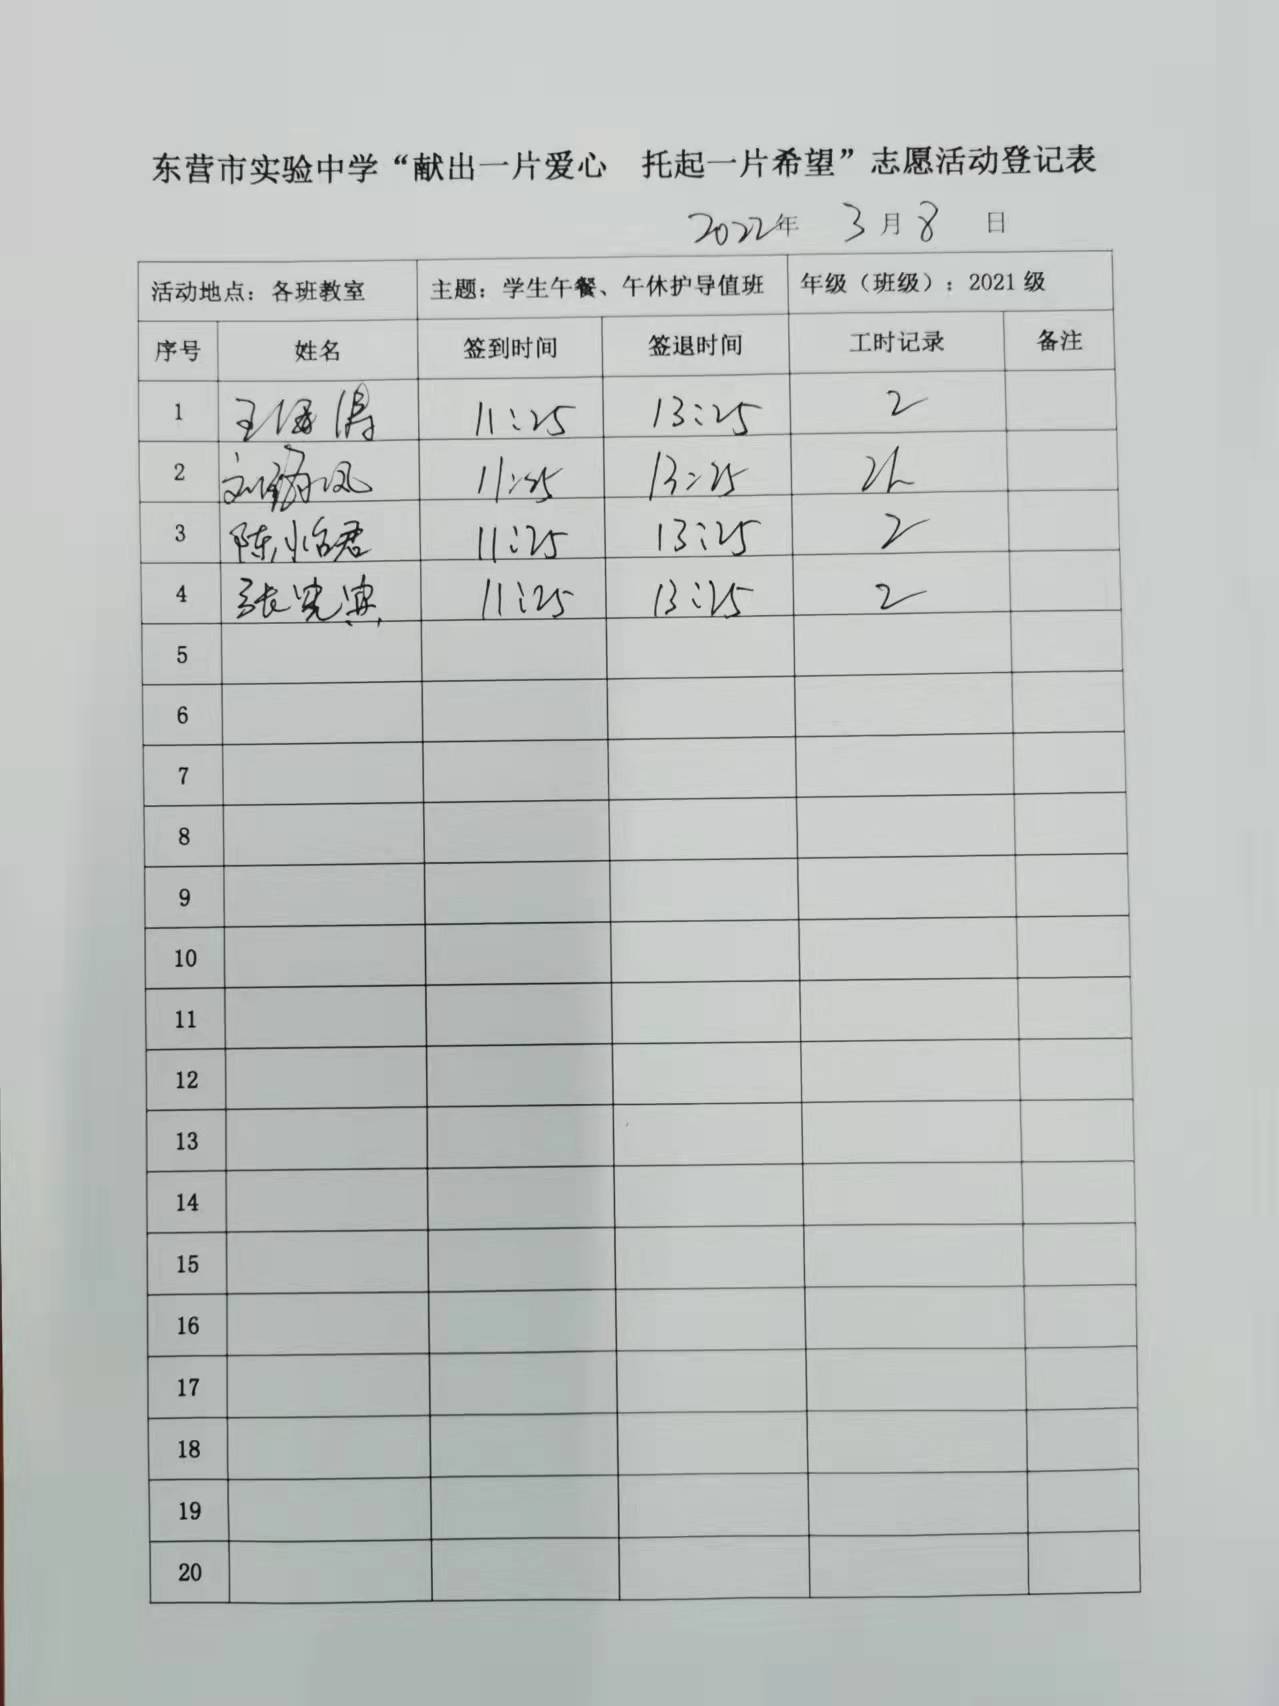 东营市实验中学“献出一片爱心 托起一片希望”志愿活动登记表
2022年 3月8 日
活动地点：各班教室 主题：学生午餐、午休护导值班 年级（班级）：2021级
序号 姓名 签到时间 签退时间 工时记录 备注
1 王 涛 11:25 13:25 2
2 刘 凤 11:25 13:25 2h
3 陈怡君 11:25 13:25 2
4 张 11:25 13:25 2
5
6
7
8
9
10
11
12
13
14
15
16
17
18
19
20